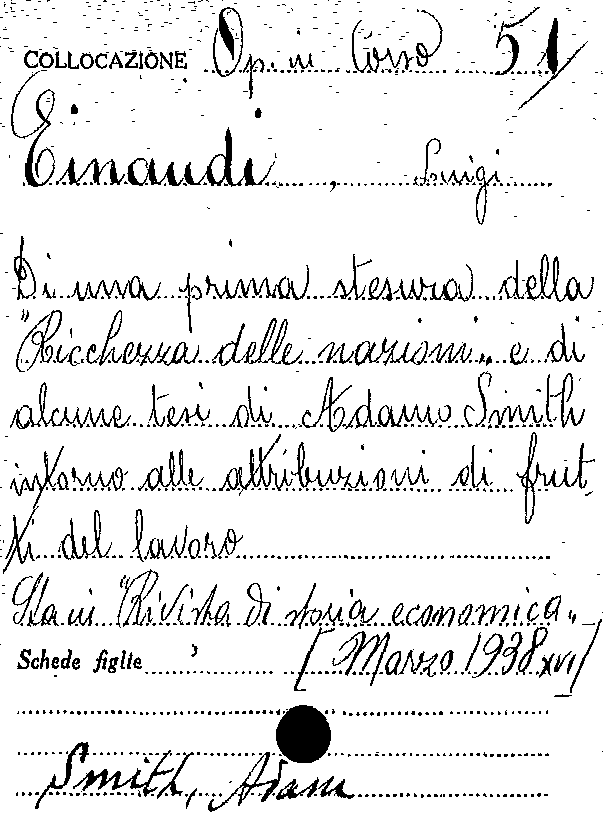 COLLOCAZIONE Op. in Corso 51
Einaudi, Luigi
Di una prima stesura della
"Ricchezza delle nazioni" e di
alcune tesi di Adamo Smith
intorno alle attribuzioni di frut-
ti del lavoro
Sta in "Rivista di storia economica"_
Schede figlie [Marzo 1938 XVI]
Smith, Adam